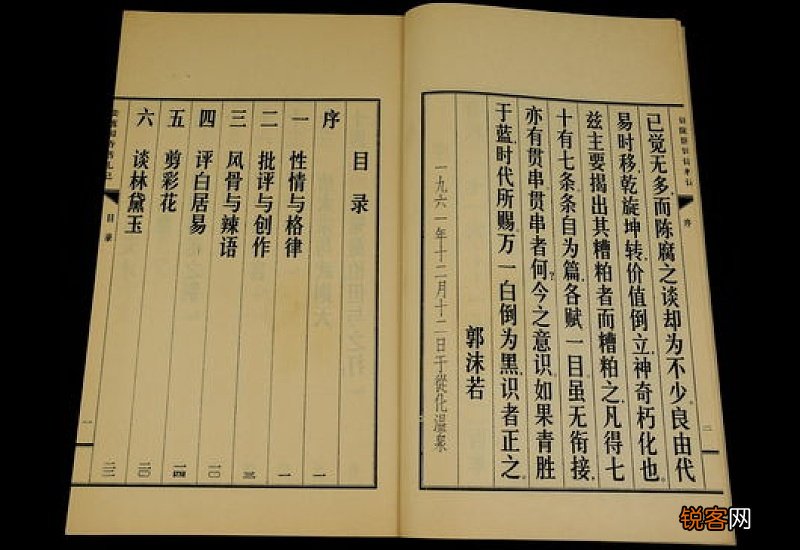 序
二
已觉无多,而陈腐之谈却为不少。良由代
易时移,乾旋坤转,价值倒立,神奇朽化也。
兹主要揭出其糟粕者而糟粕之。凡得七
十有七条。条自为篇,各赋一目,虽无衔接,
亦有贯串。贯串者何?今之意识。如果青胜
于蓝,时代所赐。万一白倒为黑,识者正之。
郭沫若
一九六一年十二月十二日于從化温泉
目录
序 一
一 性情与格律 一
二 批评与创作 三
三 风骨与辣语 一〇
四 评白居易 一四
五 剪彩花 二〇
六 谈林黛玉 二三
目录
一
锐客网